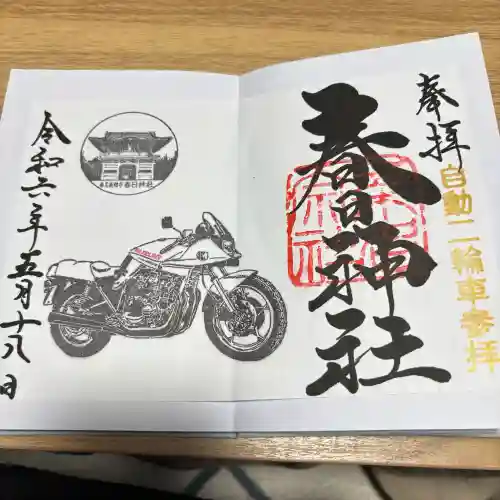 奉拝
自動二輪車参拝
春日神社
春日神社
令和六年五月十八日